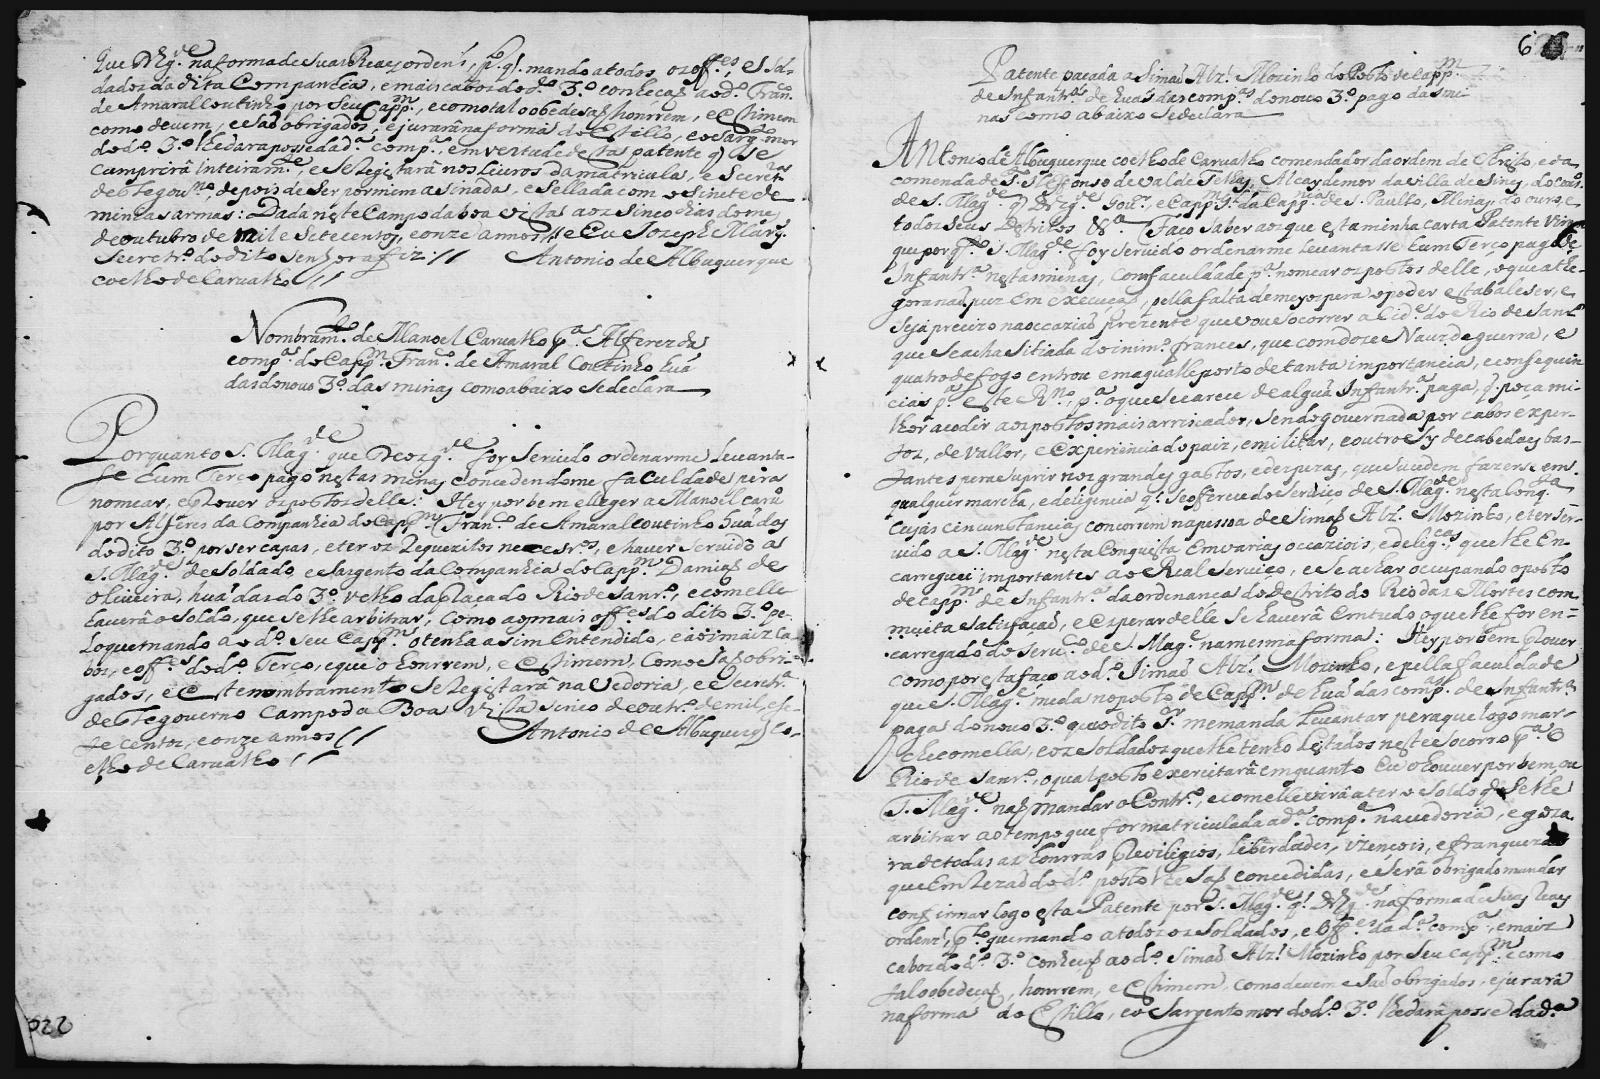 que Ds. g.de na forma de suas Reays ordens, p.lo q. mando a todos, os off.es, e sol-
dados da dita Companhia, e mais cabos do d.o 3.o conheçaõ ao d.o Fran.co
de Amaral Coutinho por seu Capp.m, e como tal o obedesaõ, honrrem, e estimem
como devem, e saõ obrigados, e jurarâ na forma do estillo, e o Sarg.to mor
do d.o 3.o lhe dara posse da d.a comp.a, em vertude desta patente q se
cumprirâ inteiram.te, e se registarâ nos livros da matricula, e Secret.ra
deste gov.no, depois de ser por mim asinada, e sellada com o sinete de
minhas armas: Dada neste Campo da boa vista aos sinco dias do mes
de outubro de mil e setecentos, e onze annos // e Eu Joseph
Secretr.o do dito senhor a fiz // Antonio de Albuquerque
coelho de Carvalho //
Nombram.to de Manoel Carvalho p.a Alferes da
comp.a do Capp.m Fran.co de Amaral Coutinho huã
das do novo 3.o das minas como abaixo se declara
Porquanto S. Mag.de que Deos g.de foy servido ordenarme levanta-
se hum Terço pago nestas minas concedendome faculdade pera
nomear, e prover os postos delle: Hey por bem elleger a Manoel carv.o
por Alferes da Companhia do Capp.m Fran.co de Amaral coutinho huã das
do dito 3.o por ser capas, e ter os requezitos necesr.os, e haver servido a
S. Mag.de de soldado, e sargento da Companhia do Capp.m Damiaõ de
Oliveira, huã das do 3.o velho da praça do Rio de Janr.o, e com elle
haverâ o soldo, que se lhe arbitrar, como aos mais off.es do dito 3.o pe-
lo que mando ao d.o seu Capp.m o tenha asim entendido, e aos mais ca
bos, e off.es do d.o Terço, e que o honrrem, e estimem, como saõ obri-
gados, e este nombramento se registarâ na vedoria, e secretr.a
deste governo Campo da Boa vista sinco de outr.o de mil, e se-
te centos, e onze annos // Antonio de Albuquerq Co-
elho de Carvalho //
6
Patente pasada a Simaõ Alz. Mozinho do Posto de Capp.m
de Infantr.a de huã das comp.as do novo 3.o pago das mi
nas como abaixo se declara
Antonio de Albuquerque coelho de Carvalho comendador da ordem de christo, e da
comenda de S. Ildefonso de val de Telhas, Alcaydemor da villa de Sines, do cons.o
de S. Mag.de q Ds. g.de Gov.or, e Capp.m g.l da Capp.nia de S. Paullo, Minas do ouro, e
todos seus Destritos &.a Faço saber aos que esta minha carta Patente virem
que por q.to S. Mag.de foy servido ordenarme levantasse hum Terço pago de
Infantr.a nestas minas, com faculdade p.a nomear os postos delle, o que athe
gora naõ puz em execucaõ, pella falta de meyos pera o poder estabaleser, e
seja precizo na occaziaõ prezente que vou socorrer a Cid.e do Rio de Janr.o
que se acha sitiada do inim.o frances, que com doze Naus de guerra, e
quatro de fogo entrou em aquelle porto de tanta importancia, e consequen
cias p.a este R.no, p.a o que se carece de alguã Infantr.a paga, q. poça mi-
lhor acodir aos postos mais arriscados, sendo governada por cabos exper-
tos, de vallor, e experiencia do paiz, e militar, e outro sy de cabedaes bas-
tantes pera suprir nos grandes gastos, e despezas, que sucedem fazerse em
qualquer marcha, e deligencia q. se offerece do serviço de S. Mag.de nesta conq.ta
cujas circunstancias concorrem na pessoa de Simaõ Alz. Mozinho, e ter ser-
vido a S. Mag.de nesta conquista em varias occaziois, e delig.cas, que lhe en-
carreguei importantes ao Real serviço, e se achar ocupando o posto
de capp.m de Infantr.a da ordenanca do destrito do Rio das Mortes com
muita satisfacaõ, e esperar delle se haverâ em tudo o que lhe for en-
carregado do serv.o de S. Mag.e na mesma forma: Hey por bem prover
como por esta faço ao d.o Simaõ Alz. Mozinho, e pella faculdade
que S. Mag.e me da no posto de Capp.m de huã das comp.as de Infantr.a
paga do novo 3.o que o dito Sr. me manda levantar pera que logo mar-
che com ella, e os soldados que lhe tenho listados neste socorro p.a o
Rio de Janr.o, o qual posto exercitarâ emquanto eu o houver por bem, ou
S. Mag.e naõ mandar o Contr.o, e com elle virâ a ter o soldo q se lhe
arbitrar ao tempo que for matriculada a d.a comp.a na vedoria, e goza
ra de todas as honrras previligios, liberdades, izençois, e franquezas
que em rezaõ do d.o posto lhe saõ concedidas, e serâ obrigado mandar
confirmar logo esta Patente por S. Mag.de q. Ds. g.de na forma de suas reays
ordens, p.lo que mando a todos os soldados, e off.es da d.a comp.a, e mais
cabos do d.o 3.o conheçaõ ao d.o Simaõ Alz. Mozinho por seu capp.m e como
tal o obedeçaõ, honrrem, e estimem, como devem e saõ obrigados, e jurarâ
na forma do Estillo, e o Sargento mor do d.o 3.o lhe darâ posse da d.a